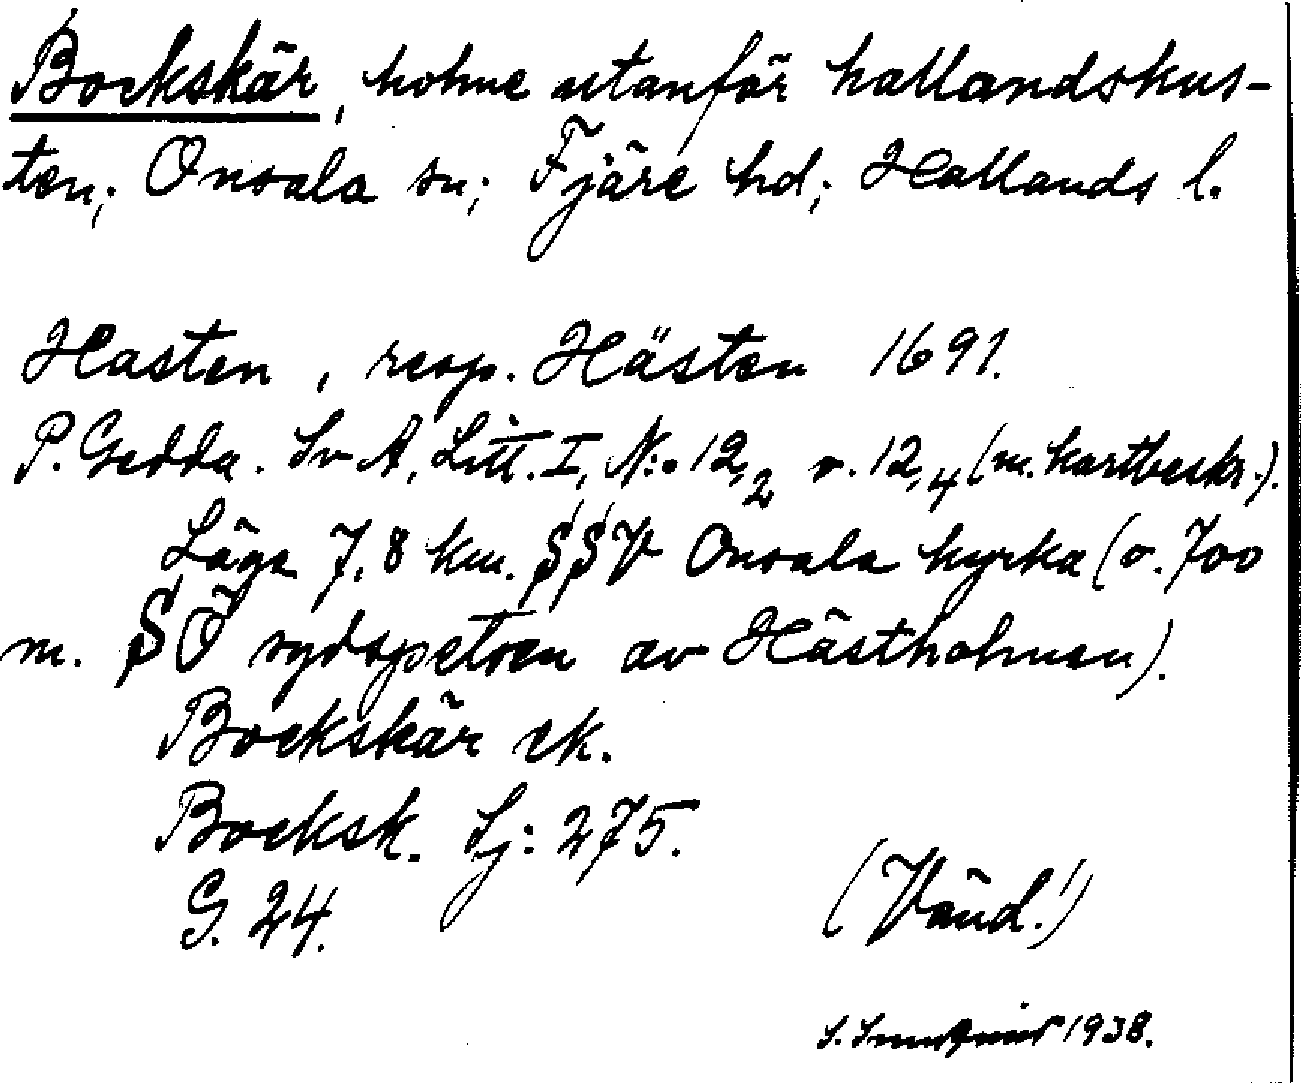 Bockskär, holme utanför hallandskus-
ten; Onsala sn; Fjäre hd; Hallands l.
Hasten, resp. Hästen 1691.
P. Gedda. Sv A, Litt. I, N:o 12,2 o. 12,4 (m. kartbeskr.).
Läge 7,8 km. SSV Onsala kyrka (o. 700
m. SÖ sydspetsen av Hästholmen).
Bockskär ek.
Bocksk. Sj: 275.
G. 24.
(Vänd!)
S. 1938.